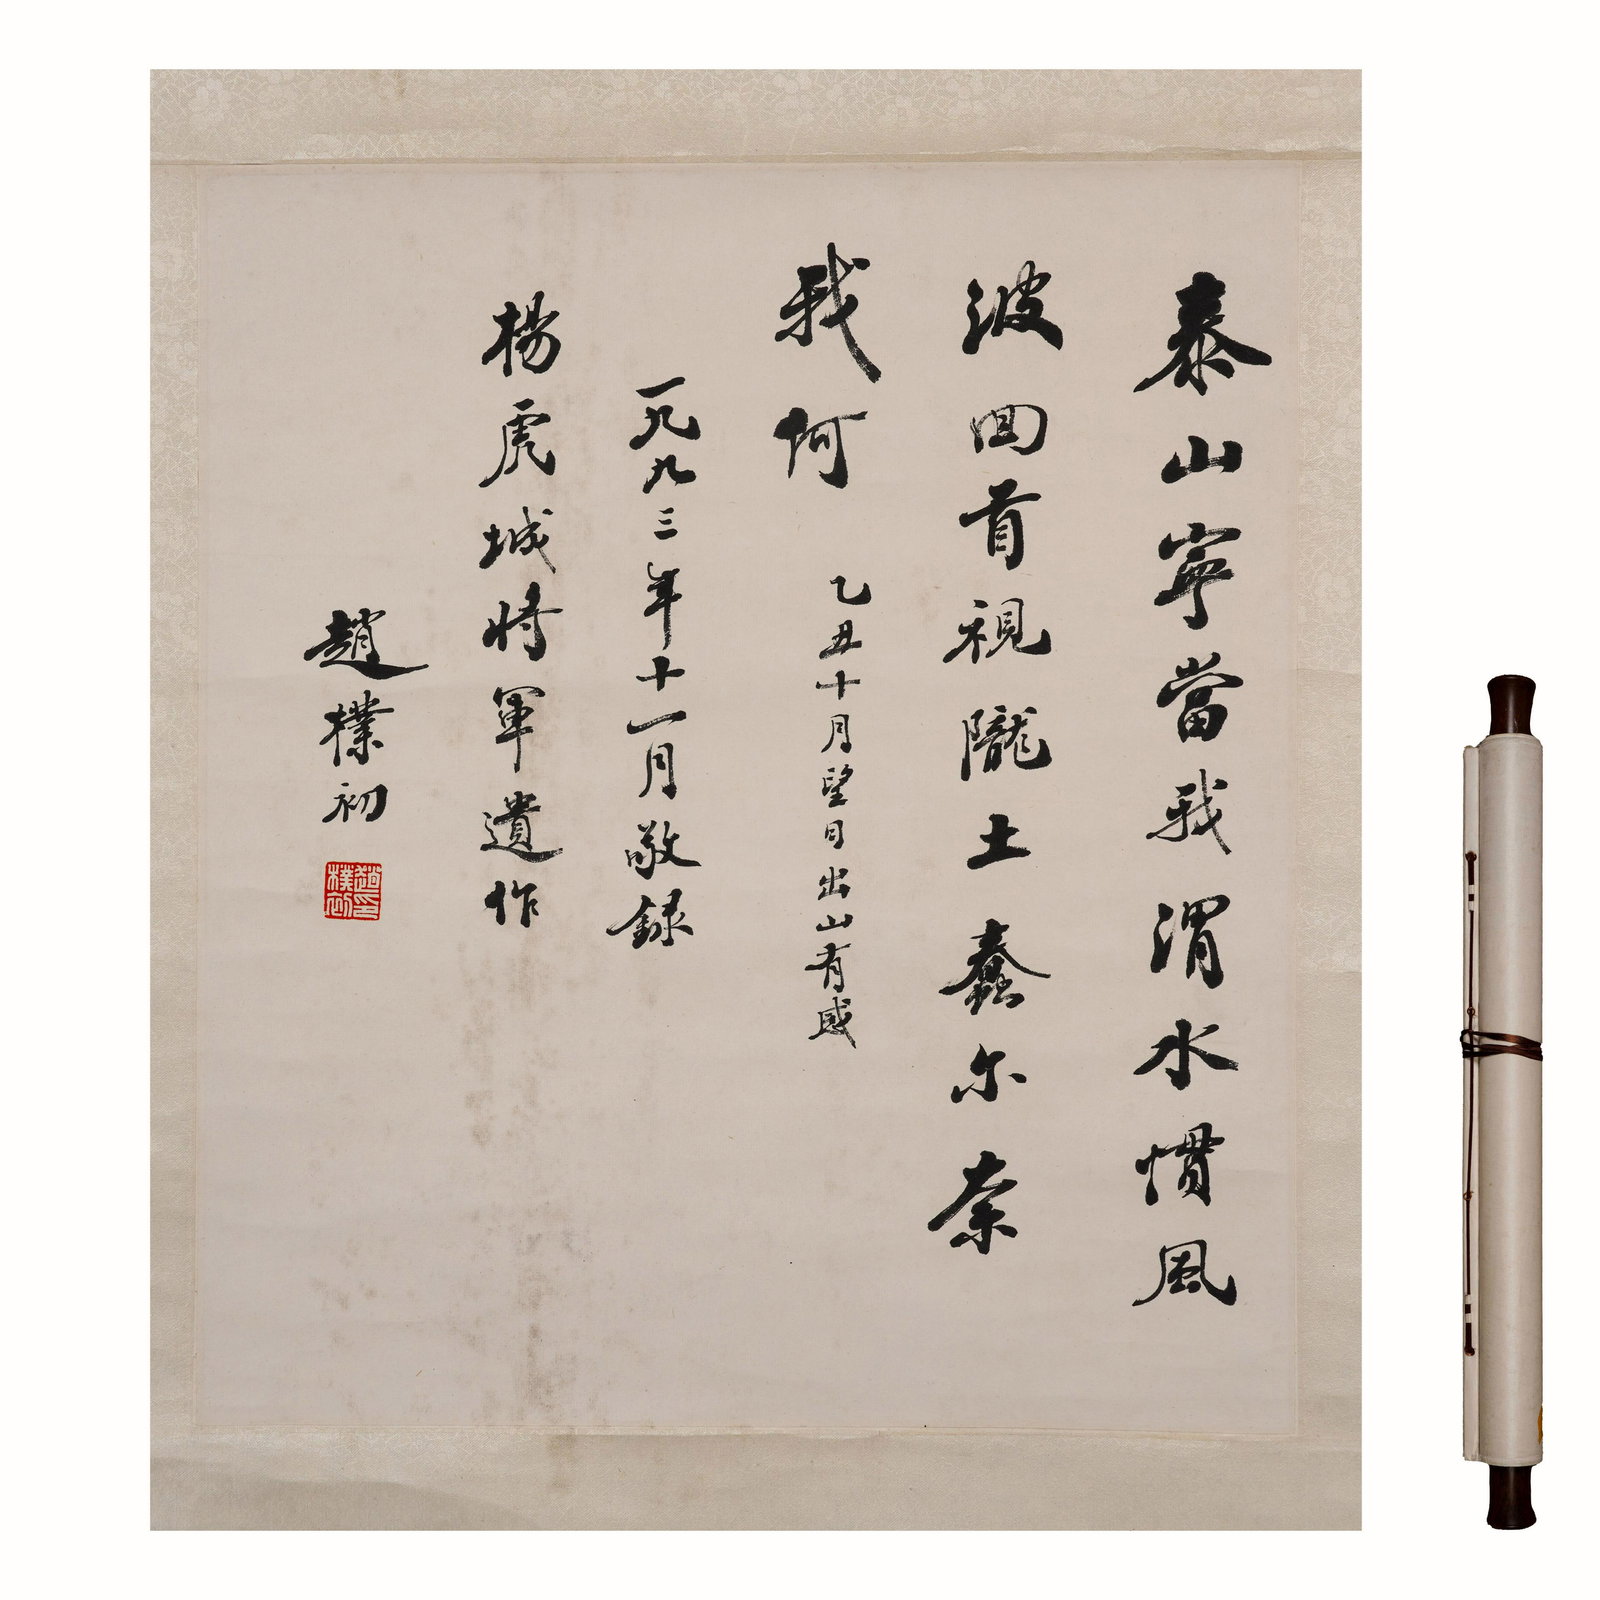 泰山寧當我渭水慣風
波回首視隴土蠢尔奈
我何
乙丑十月望日出山有感
一九九三年十一月敬録
楊虎城將軍遺作
趙樸初
趙樸初印